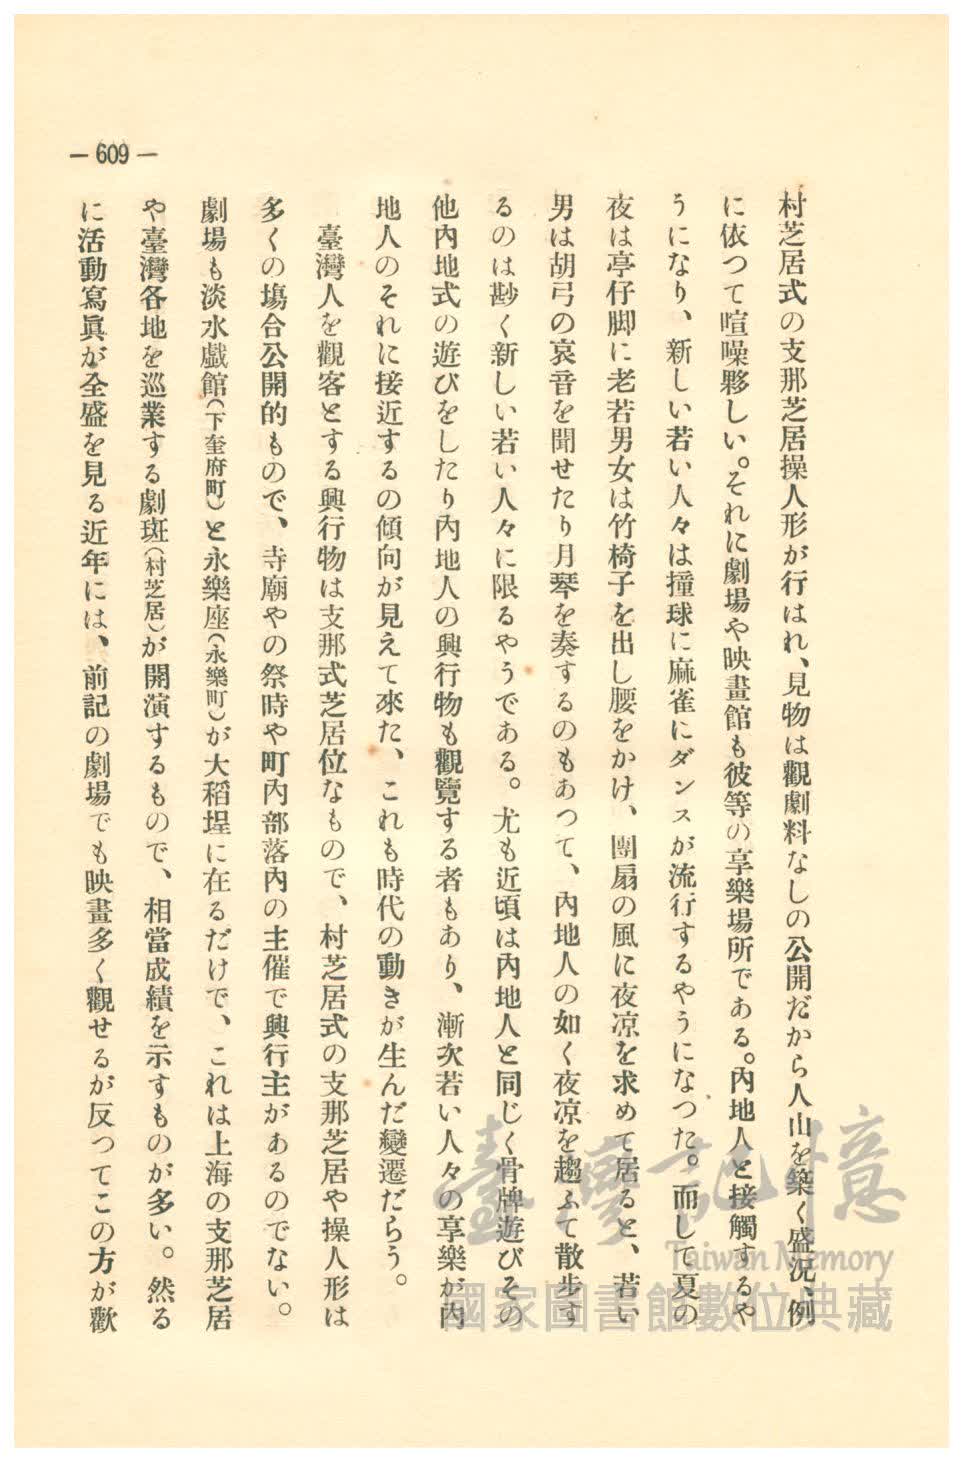 — 609 —
村芝居式の支那芝居操人形が行はれ、見物は觀劇料なしの公開だから人山を築く盛況、例
に依つて喧噪夥しい。それに劇場や映畫館も彼等の享樂場所である。內地人と接觸するや
うになり、新しい若い人々は撞球に麻雀にダンスが流行するやうになつた。而して夏の
夜は亭仔脚に老若男女は竹椅子を出し腰をかけ、團扇の風に夜凉を求めて居ると、若い
男は胡弓の哀音を聞せたり月琴を奏するのもあつて、內地人の如く夜凉を趨ふて散步す
るのは尠く新しい若い人々に限るやうである。尤も近頃は內地人と同じく骨牌遊びその
他內地式の遊びをしたり內地人の興行物も觀覽する者もあり、漸次若い人々の享樂が內
地人のそれに接近するの傾向が見えて來た、これも時代の動きが生んだ變遷だらう。
臺灣人を觀客とする興行物は支那式芝居位なもので、村芝居式の支那芝居や操人形は
多くの場合公開的もので、寺廟やの祭時や町內部落內の主催で興行主があるのでない。
劇場も淡水戲館(下奎府町)と永樂座(永樂町)が大稻埕に在るだけで、これは上海の支那芝居
や臺灣各地を巡業する劇班(村芝居)が開演するもので、相當成績を示すものが多い。然る
に活動寫眞が全盛を見る近年には、前記の劇場でも映畫多く觀せるが反つてこの方が歡
臺灣記憶
Taiwan Memory
國家圖書館數位典藏